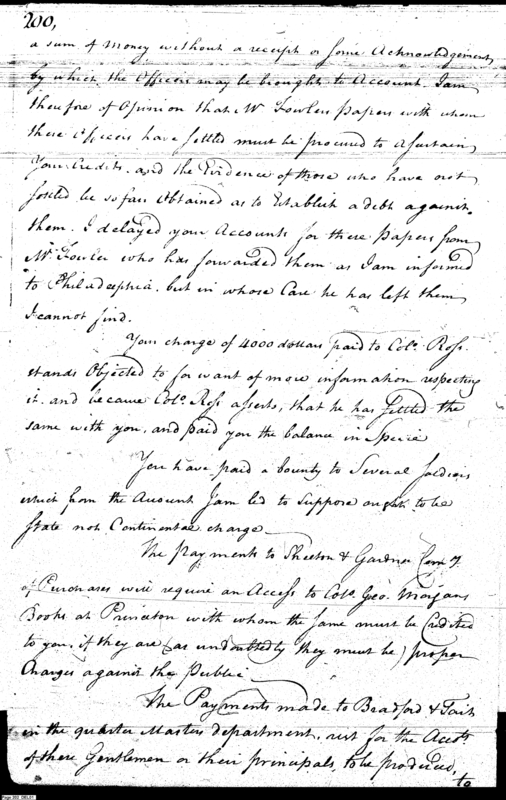 200,
a sum of money without a receipt or some Acknowledgement
by which the Officers may be brought to Account. I am
therefore of Opinion that Mr Fowlers papers with whom
these Officers have settled must be procured to Ascertain
Your Credits. and the Evidence of those who have not
settled be so far Obtained as to Establish a debt against
them. I delayed your Accounts for these papers from
Mr. Fowler who has forwarded them as I am informed
to Philadelphia. but in whose Care he has left them
I cannot find.
Your charge of 4000 dollars paid to Colo. Ross.
stands Objected to for want of more information respecting
it. and because Colo. Ross asserts, that he has settled the
same with you, and paid you the balance in Specie
You have paid a bounty to Several Soldiers
which from the Account I am led to Suppose ought to be
State not Continental charge
The payments to Skelton & Gardner Com. of
of Purchases will require an Access to Colo. Geo. Morgans
Books at Princeton with whom the same must be Credited
to you, if they are (as undoubtedly they must be) proper
Charges against the Public
The Payments made to Bradford & Tait
in the quarter Masters department, rest for the Accots.
of these Gentlemen or their principals, to be produced,
to
Page 203 (M5,01